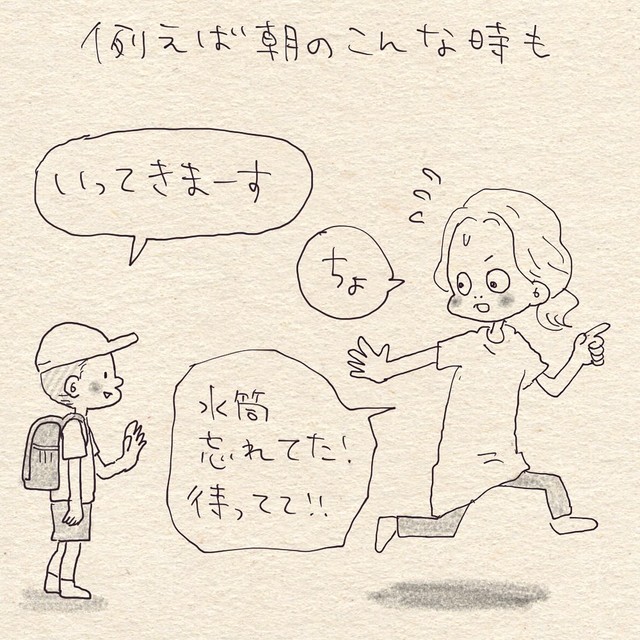 例えば朝のこんな時も
いってきまーす
ちょ
水筒
忘れてた!
待ってて!!